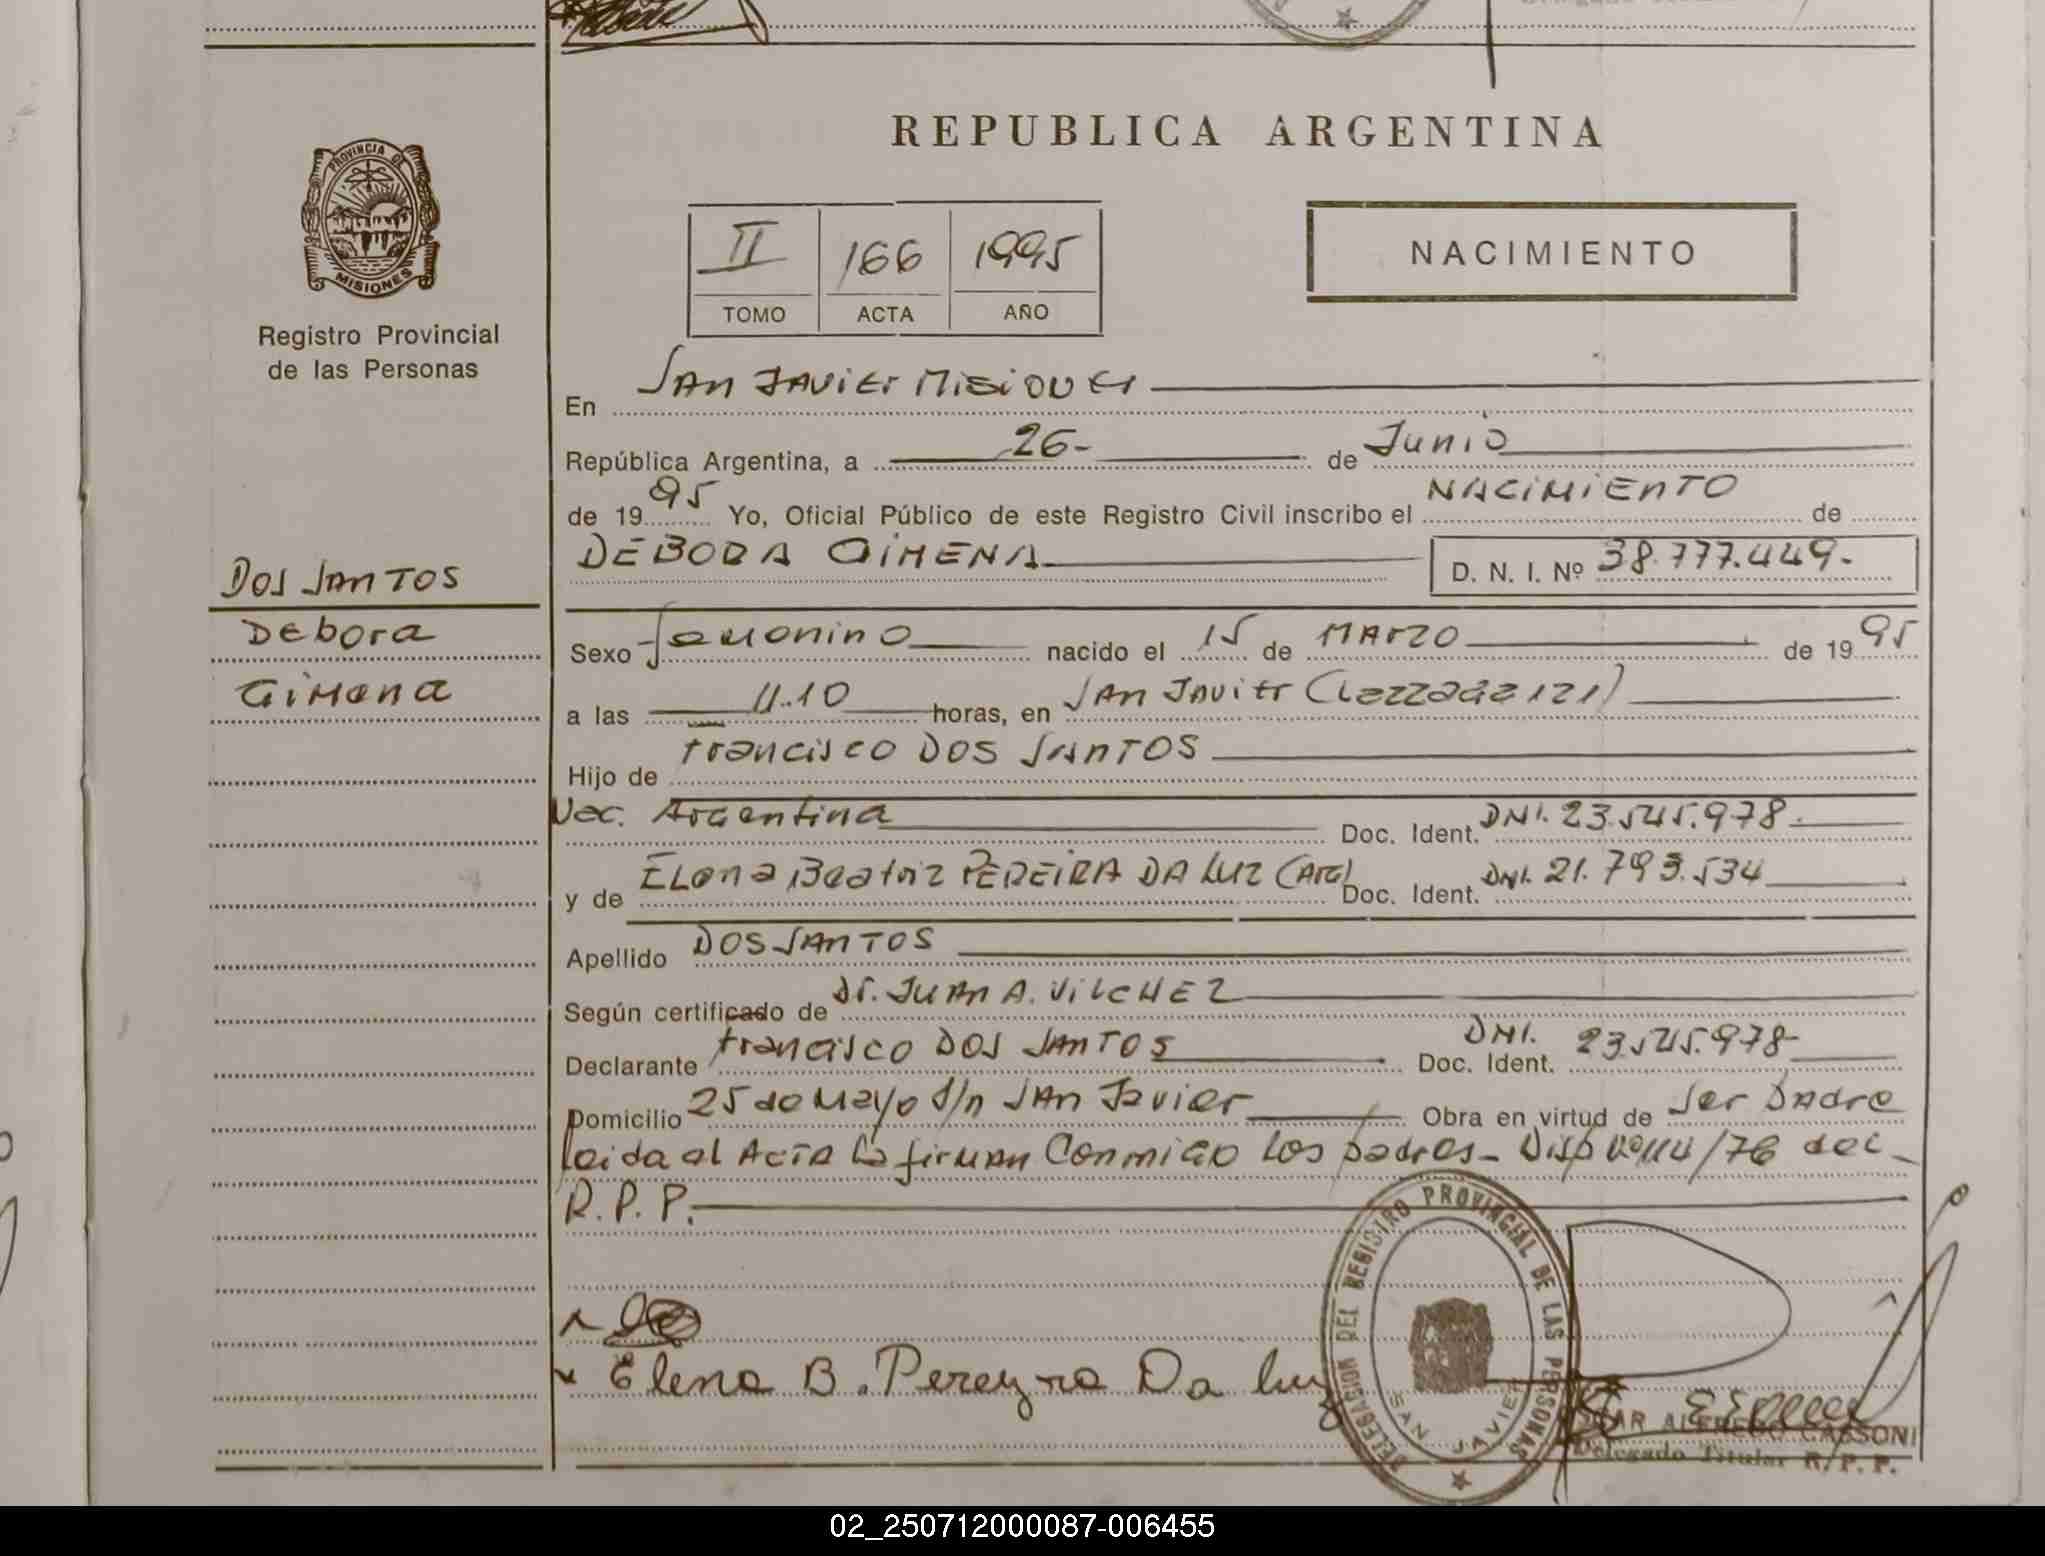 REPUBLICA ARGENTINA
PROVINCIA DE
MISIONES
Registro Provincial
de las Personas
II 166 1995
TOMO ACTA AÑO
NACIMIENTO
En San Javier Misiones
República Argentina, a 26- de Junio
de 1995 Yo, Oficial Público de este Registro Civil inscribo el NACIMIENTO de
DEBORA GIMENA D. N. I. Nº 38.777.449.-
DOS SANTOS
Debora
Gimena
Sexo femenino nacido el 15 de MARZO de 1995
a las 11.10 horas, en San Javier
Hijo de Francisco DOS SANTOS
Nac. Argentina Doc. Ident. DNI. 23.545.978.-
y de Elena Beatriz PEREIRA DA LUZ (Arg) Doc. Ident. DNI. 21.793.534
Apellido DOS SANTOS
Según certificado de Dr. JUAN A. VILCHEZ
Declarante Francisco DOS SANTOS Doc. Ident. DNI. 23.545.978-
Domicilio 25 de Mayo S/n San Javier Obra en virtud de Ser Padre
Leida el Acta la firman Conmigo los padres- Disp /76 del-
R.P.P.
Elena B. Pereyra Da Luz
DELEGACION DEL REGISTRO PROVINCIAL DE LAS PERSONAS
SAN JAVIER
OSCAR ALFREDO CASSONI
Delegado Titular R.P.P.
02_250712000087-006455